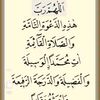 اللَّهُمَّ رَبَّ
هَذِهِ الدَّعْوَةِ التَّامَّةِ
وَالصَّلَاةِ الْقَائِمَةِ
آتِ مُحَمَّدًا الْوَسِيلَةَ
وَالْفَضِيلَةَ وَالدَّرَجَةَ الرَّفِيعَةَ